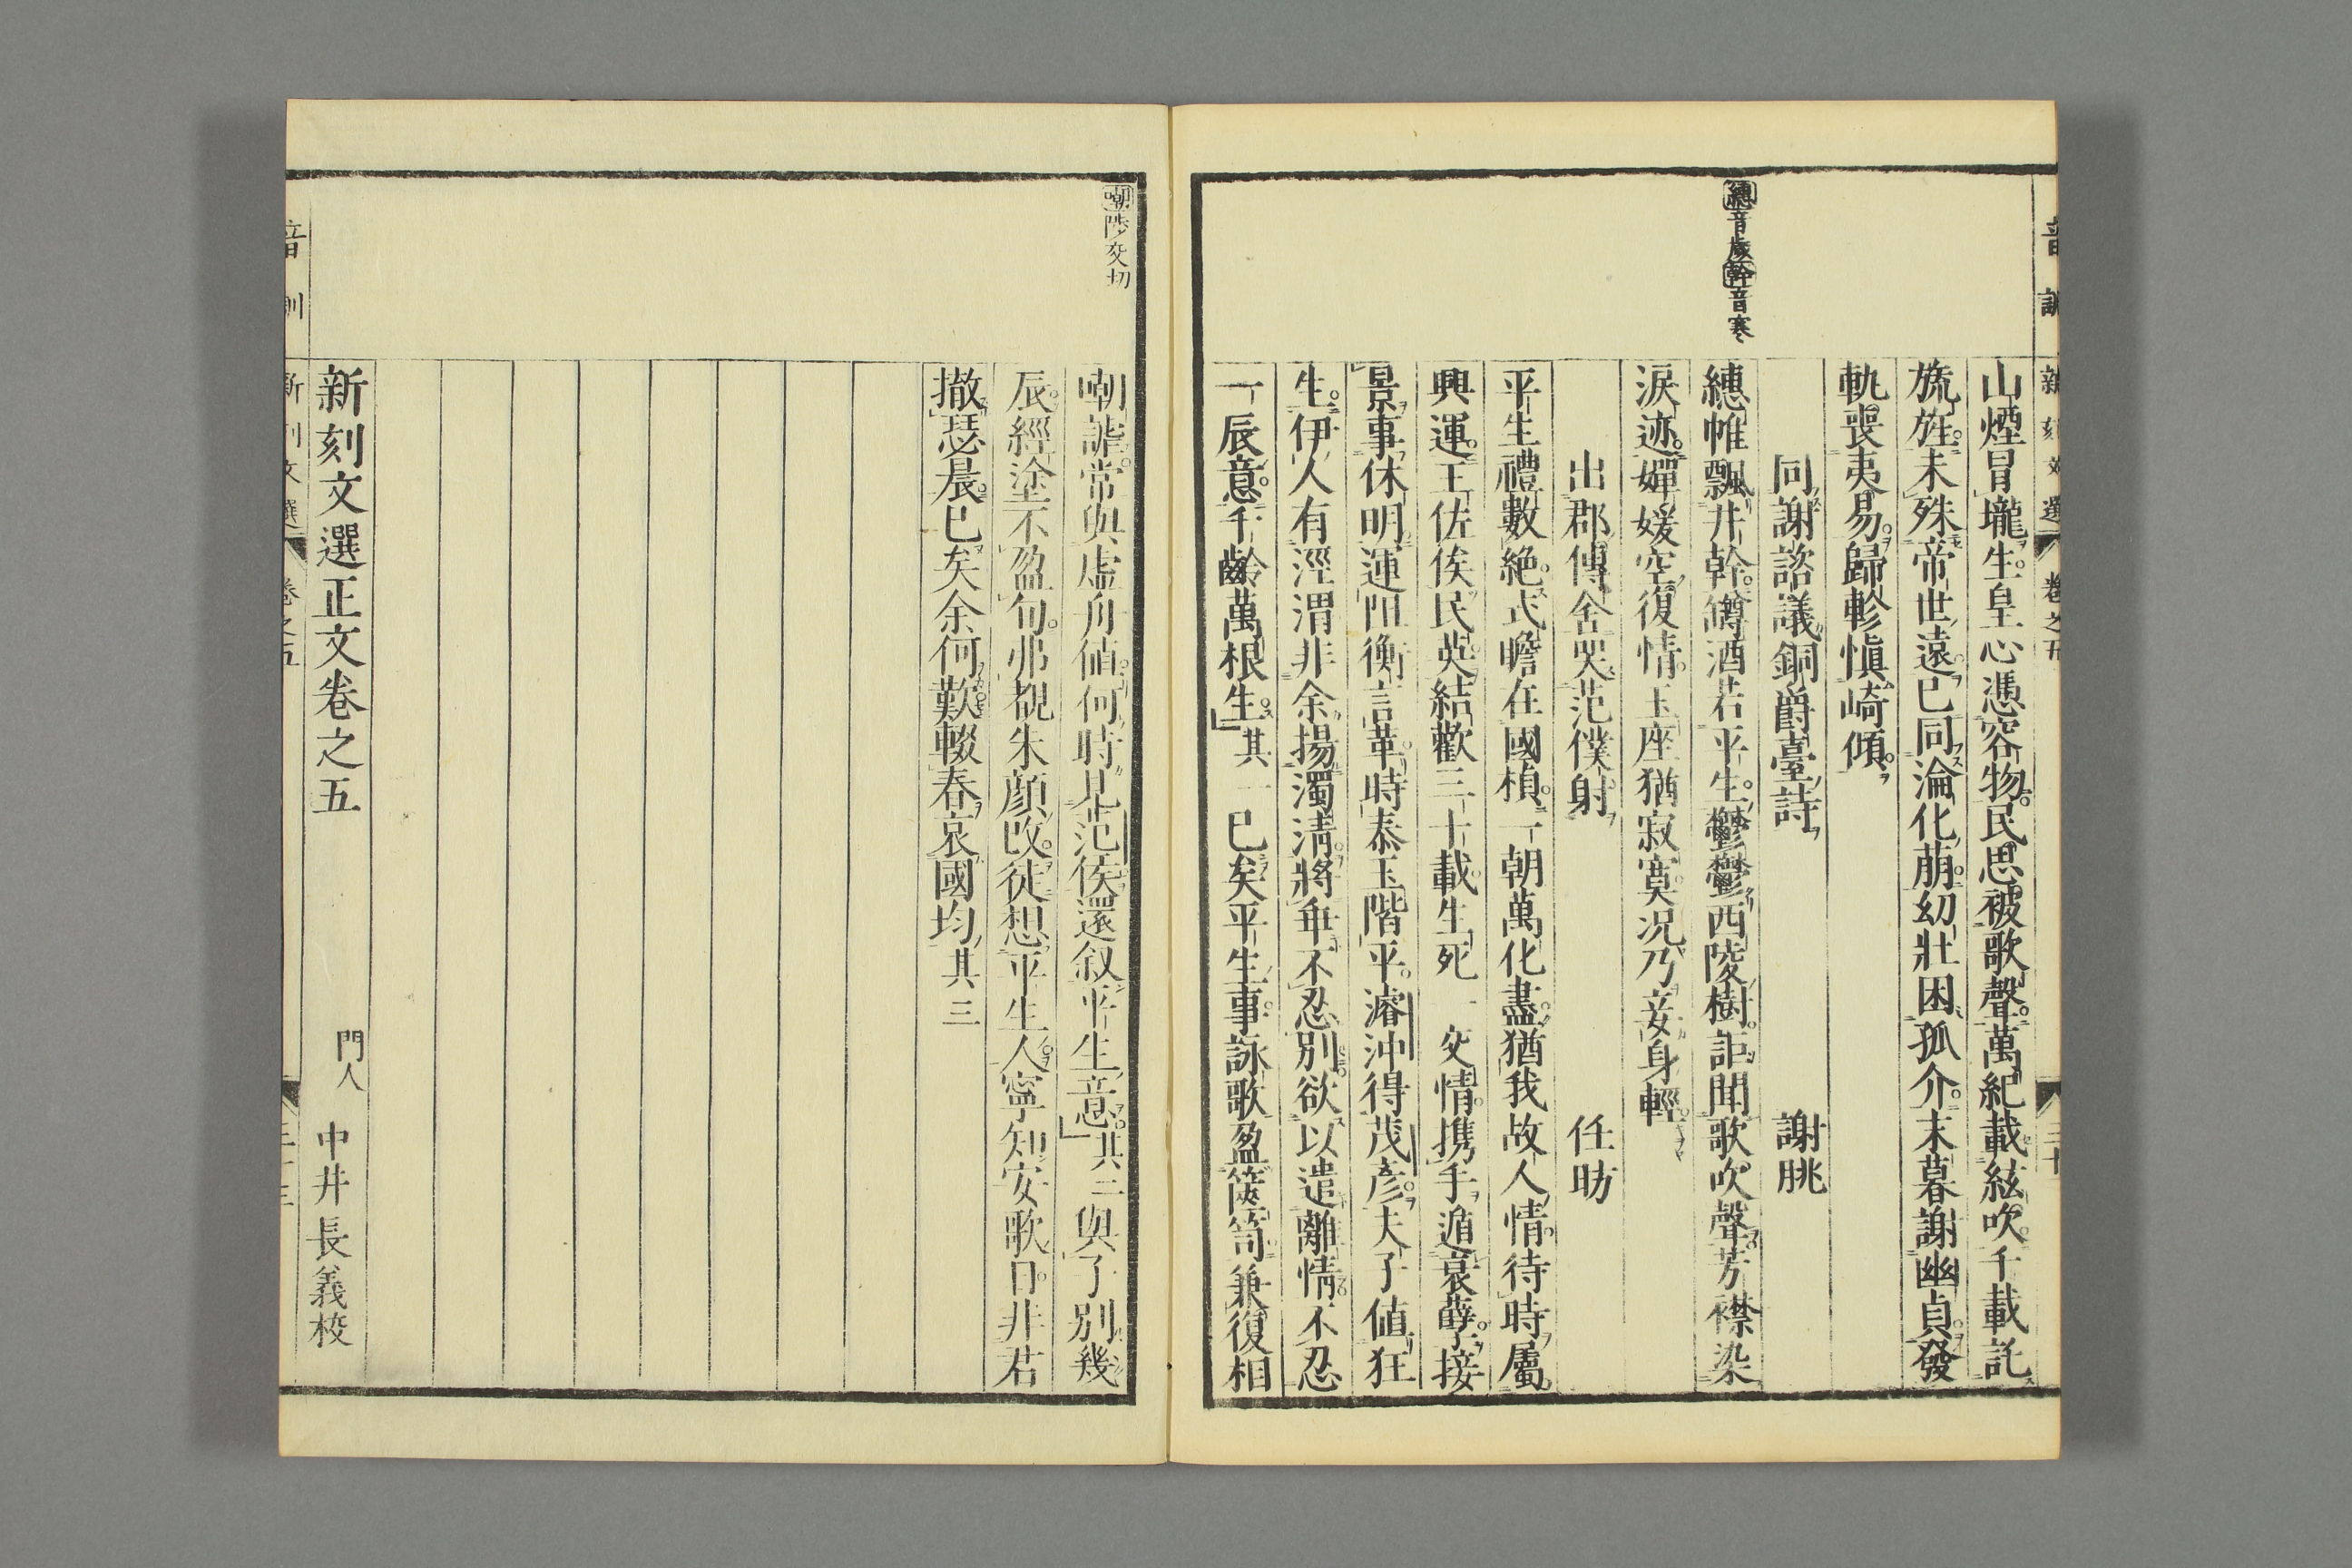 音訓
新刻文選
卷之五
三十
山煙冒壠生皇心憑容物民思被歌聲萬紀載絃吹千載託
旒旌未殊帝世遠已同淪化萠幼壯困孤介末暮謝幽貞發
軌喪夷易歸軫愼崎傾
同謝諮議銅爵臺詩 謝朓
繐音歲幹音寒
繐帷飄井幹罇酒若平生鬱鬱西陵樹詎聞歌吹聲芳襟染
淚迹嬋媛空復情玉座猶寂寞況乃妾身輕
出郡傳舍哭范僕射 任昉
平生禮數絶式瞻在國楨一朝萬化盡猶我故人情待時屬
興運王佐俟民英結歡三十載生死一交情携手遁衰孽接
景事休明運阻衡言革時泰玉階平濬沖得茂彥夫子値狂
生伊人有涇渭非余揚濁淸將乖不忍別欲以遣離情不忍
一辰意千齡萬根生其一已矣平生事詠歌盈篋笥兼復相
嘲陟交切
嘲謔常與虛舟値何時見范侯還叙平生意其二與子別幾
辰經塗不盈旬弗覩朱顏改徒想平生人寧知安歌日非君
撤瑟晨已矣余何歎輟春哀國均其三
新刻文選正文卷之五
門人 中井長義校
音訓
新刻文選
卷之五